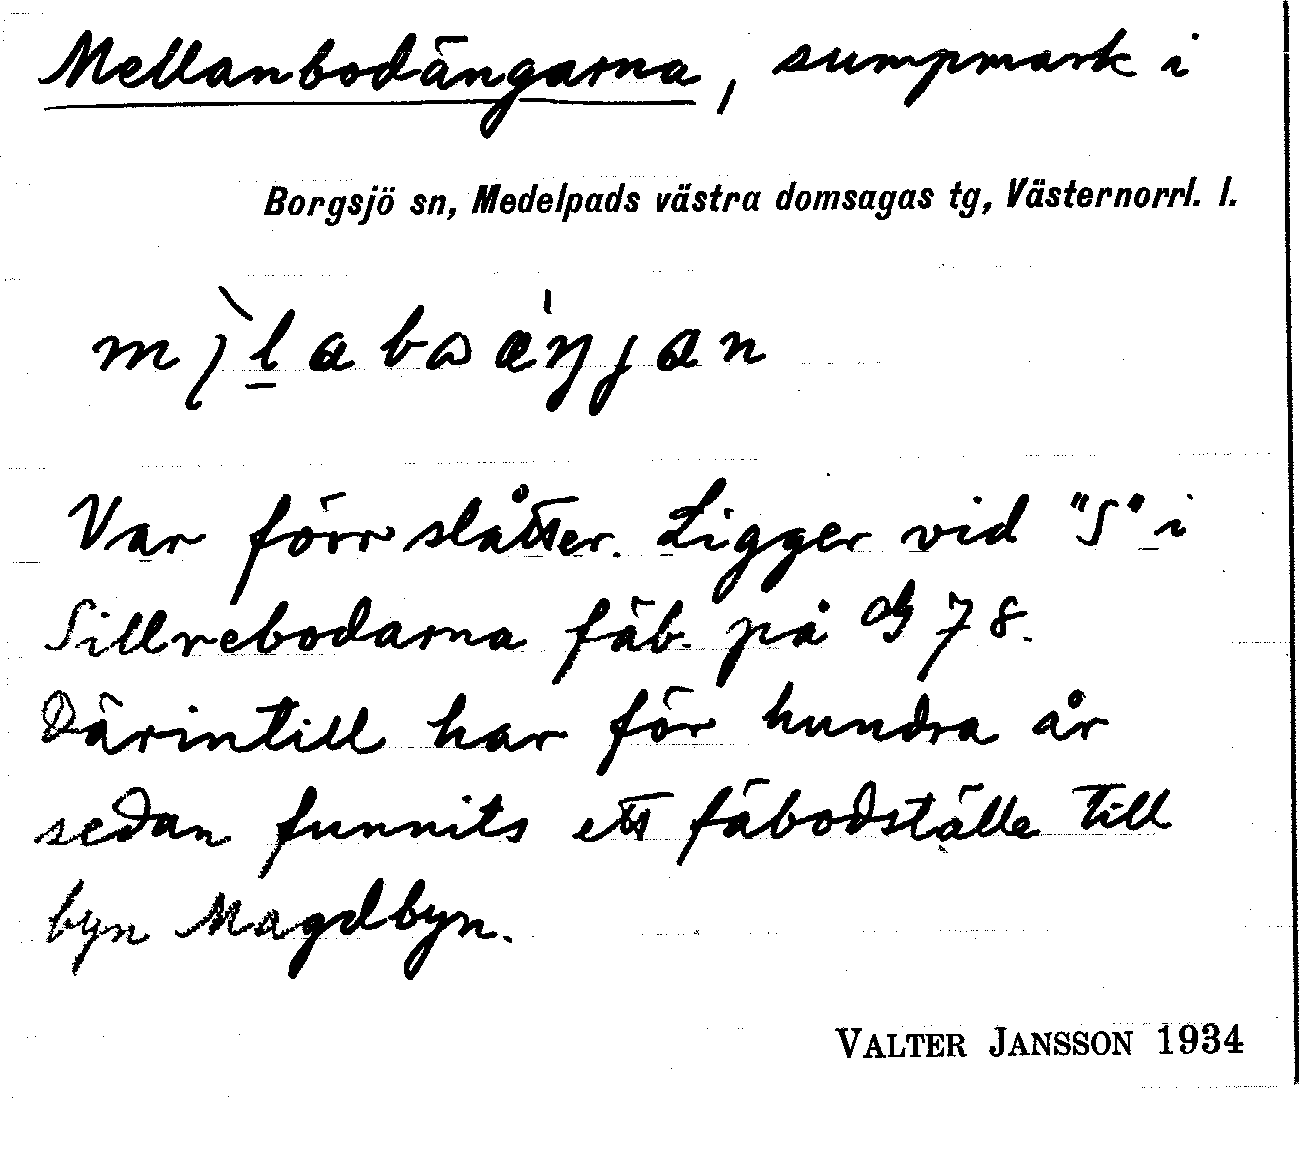 Mellanbodängarna, sumpmark i
Borgsjö sn, Medelpads västra domsagas tg, Västernorrl. l.
Var förr slåtter. Ligger vid "S" i
Sillrebodarna fäb. på 78.
Därintill har för hundra år
sedan funnits ett fäbodställe till
byn Magdbyn.
VALTER JANSSON 1934